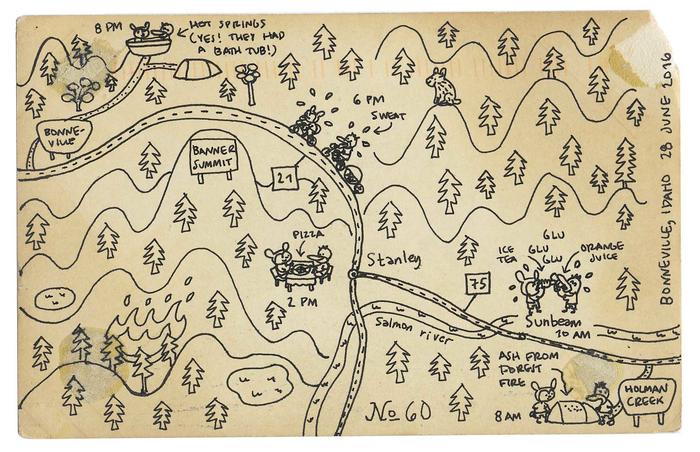 8 PM
HOT SPRINGS
(YES! THEY HAD
A BATH TUB!)
BONNE-
VILLE
BANNER
SUMMIT
21
6 PM
SWEAT
PIZZA
2 PM
Stanley
75
ICE
TEA
GLU
GLU
GLU
ORANGE
JUICE
Salmon river
Sunbeam
10 AM
ASH FROM
FOREST
FIRE
8 AM
HOLMAN
CREEK
No 60
BONNEVILLE, IDAHO 28 JUNE 2016